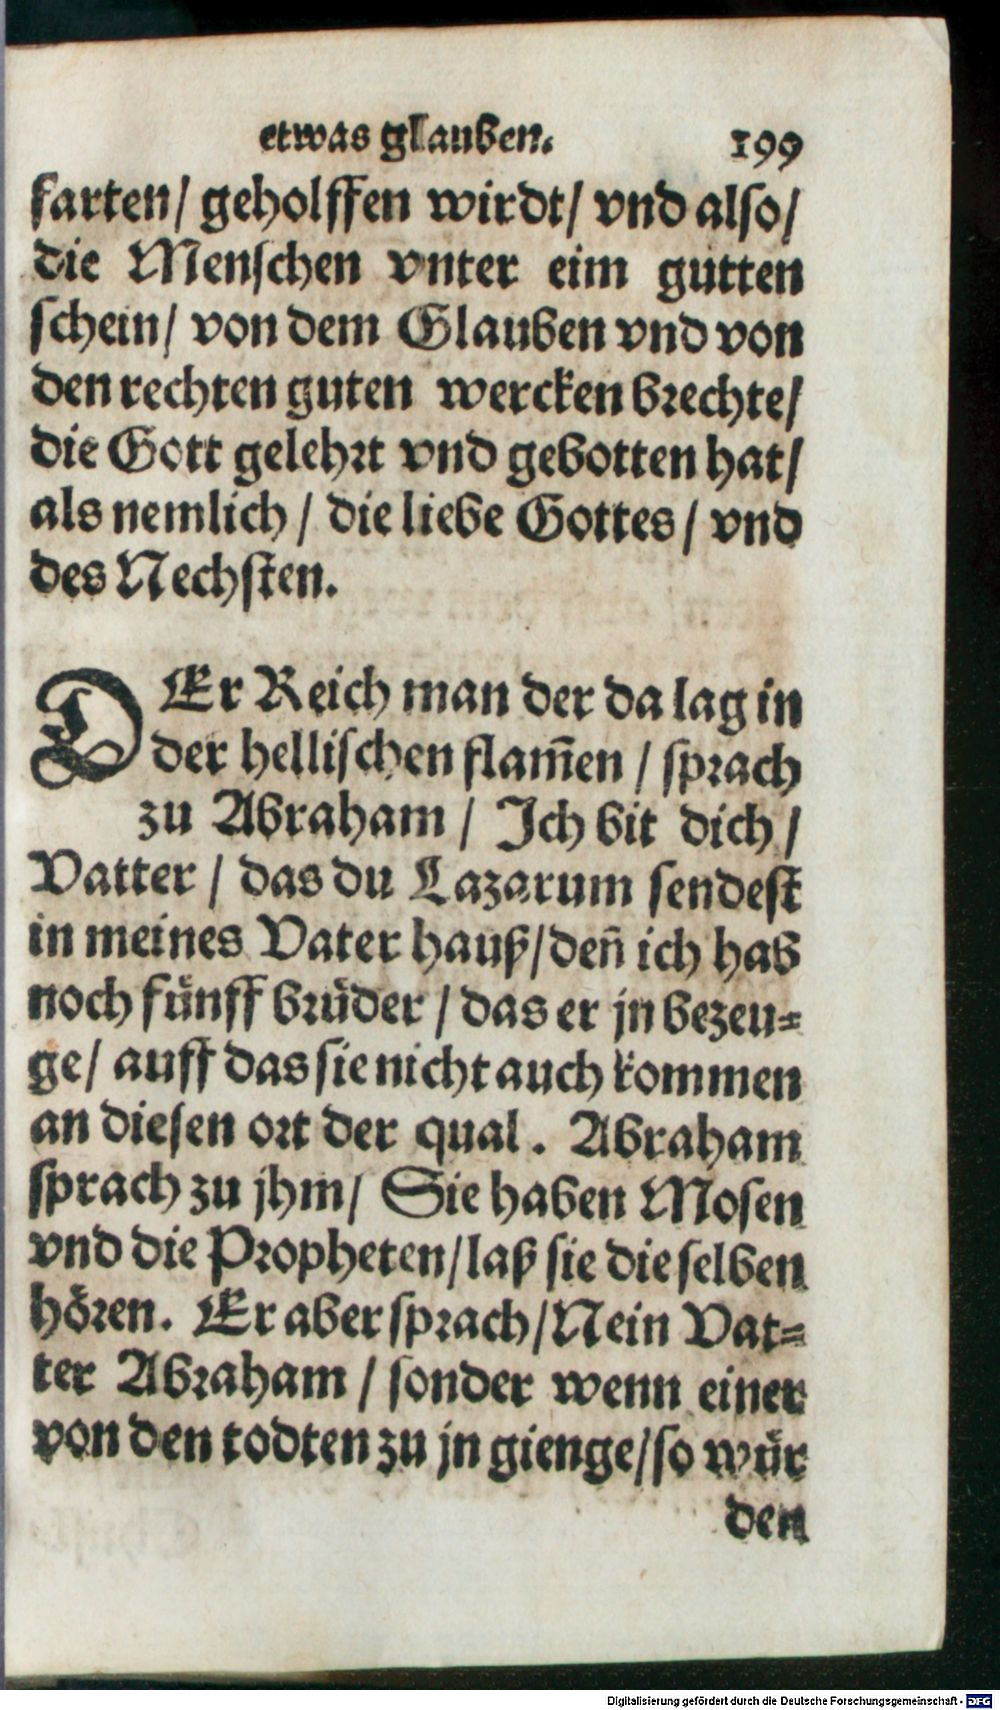 etwas glauben. 199
farten/ geholffen wirdt/ vnd also/
die Menschen vnter eim gutten
schein/ von dem Glauben vnd von
den rechten guten wercken brechte/
die Gott gelehrt vnd gebotten hat/
als nemlich / die liebe Gottes / vnd
des Nechsten.
DEr Reich man der da lag in
der hellischen flam̄en / sprach
zu Abraham / Ich bit dich /
Vatter / das du Lazarum sendest
in meines Vater hauß/ deñ ich hab
noch fünff brüder / das er jn bezeu=
ge/ auff das sie nicht auch kommen
an diesen ort der qual. Abraham
sprach zu jhm/ Sie haben Mosen
vnd die Propheten/ laß sie die selben
hören. Er aber sprach/ Nein Vat=
ter Abraham / sonder wenn einer
von den todten zu jn gienge/ so wür
den
Digitalisierung gefördert durch die Deutsche Forschungsgemeinschaft - DFG